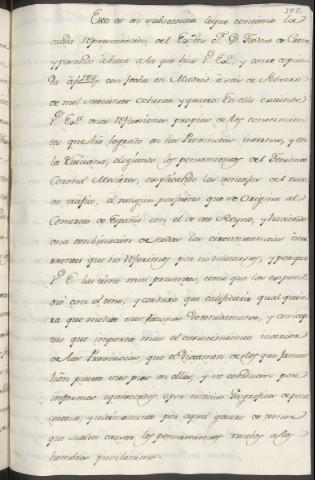 395.
Esto es en substancia lo que contiene la
citada representacion del Exmo. Sr. D. Teodoro de Croix,
y pasando ahora a la que hizo V. Exa. y corre copia
da á f. con fecha en Madrid á seis de Febrero
de mil setecientos ochenta y quatro. En ella expone
V. Exa. unas reflexiones propias de los conocimien
tos que ha logrado en las Provincias internas, y en
la Luciana, elogiando los pensamientos del Teniente
Coronel Mesieres, explicando las ventajas del nue
vo trafico, el ningun perjuicio que se origina al
Comercio de España con el de este Reyno, y haciendo
una combinacion de todas las circunstancias ocu
rrentes que no referimos por no dilatarnos, y porque
V. E. las tiene muy presentes, como que las expen
dió con el tino, y cordura que calificaria qualquie
ra que medite sus juiciosos dictamenes, y concep
tue que importa mas el conocimiento interior
de las Provincias, que el dictamen de los que jamas
han puesto sus pies en ellas, y se conducen por
informes equivocados, ó por noticias
y ultimamente por aquel genero de temor
que suelen causar los pensamientos nuevos á los
hombres pusilanimes.